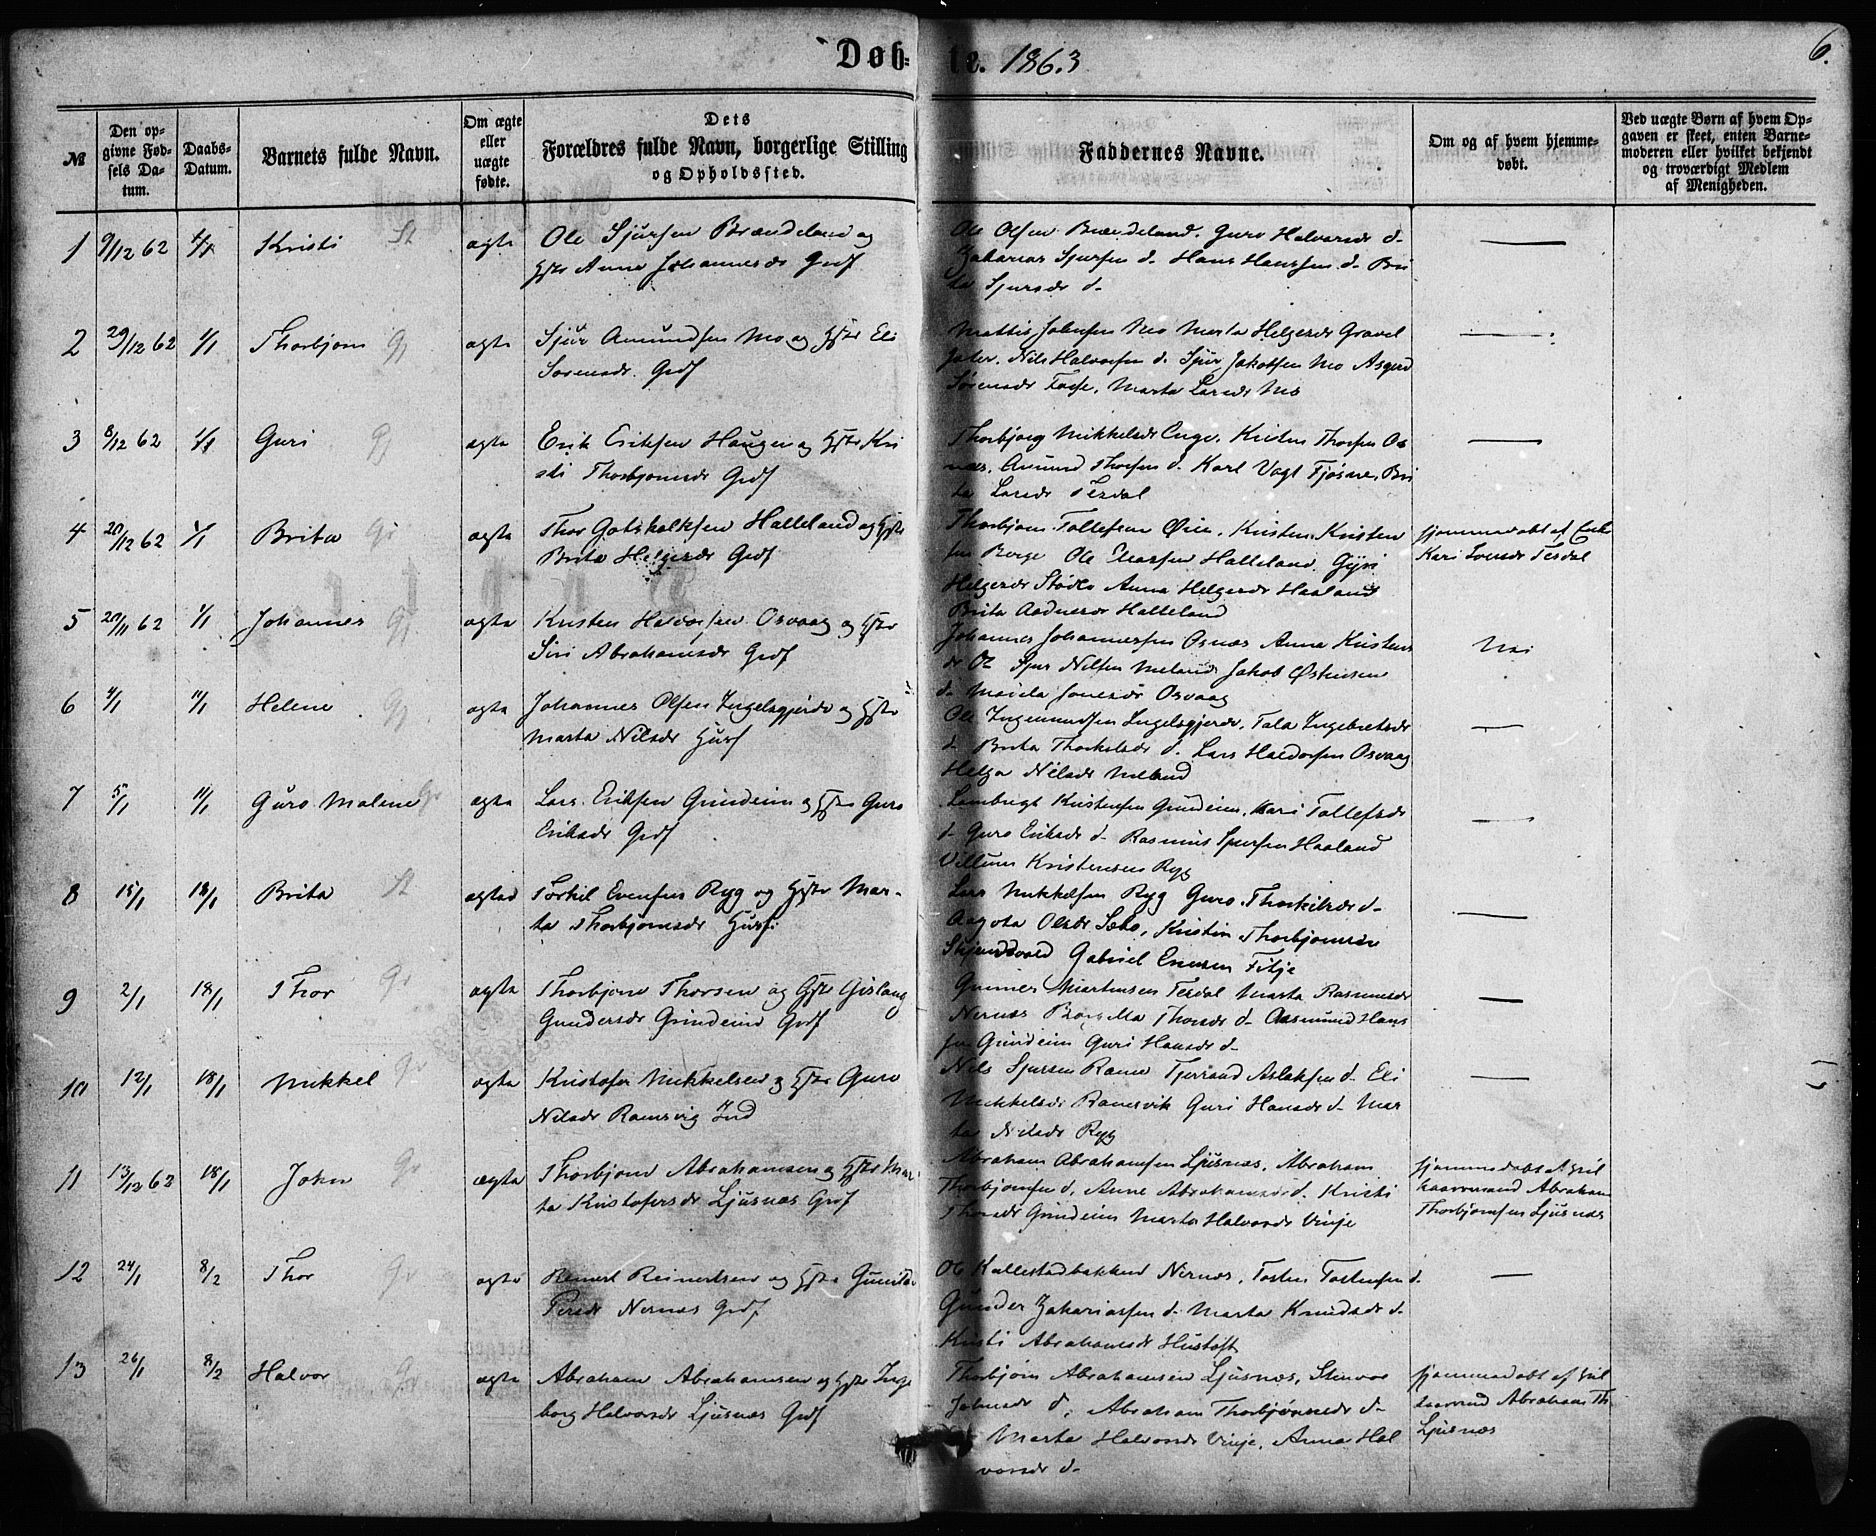 Døbte. 1863
6.
№
Den opgivne Fødsels Datum.
Daabs-Datum.
Barnets fulde Navn.
Om ægte eller uægte fødte.
Dets Forældres fulde Navn, borgerlige Stilling og Opholdssted.
Faddernes Navne.
Om og af hvem hjemmedøbt.
Ved uægte Børn af hvem Opgaven er skeet, enten Barnemoderen eller hvilket bekjendt og troværdigt Medlem af Menigheden.
1 9/12 62 4/1 Kristi St ægte Ole Sjursen Brandeland og
Hstr Anna Johannesdr Grdf
Ole Olsen Brandeland. Guro Halvorsdr d-
Zakarias Sjursen d- Hans Hanssen d- Bri
ta Sjursdr d-
2 29/12 62 1/1 Thorbjørn Gj ægte Sjur Amundsen Mo og Hstr Eli
Sørensdr. Grdf
Mattis Johnsen Mo Marta Helgesdr Gravel
sæter. Nils Halvorsen d. Sjur Jakobsen Mo Asgerd
Sørensdr Fosse, Marta Larsdr Mo
3 8/12 62 1/1 Guri Gj ægte Erik Eriksen Haugen og Hstr Kri
sti Thorbjørnsdr Grdf
Thorbjørg Mikkelsdr Enge. Kristen Thorsen Os
næs. Amund Thorsen d. Karl Vogt Fjøsne, Bri
ta Larsdr Tesdal
4 20/12 62 1/1 Brita Gr ægte Thor Gotskalksen Halleland og Hstr
Brita Helgesdr Grdf
Thorbjørn Tollefsen Øie, Kristen Kristen
sen Berge Ole Eliassen Halleland. Gyri
Helgesdr Stødle Anna Helgesdr Haaland
Brita Aadnesdr Halleland
hjemmedøbt af Enke
Kari Larsdr Tesdal
5 20/11 62 1/1 Johannes Gj. ægte Kristen Halvorsen Osvaag og Hstr
Siri Abrahamsdr Grdf
Johannes Johannessen Osnæs Anna Kristens
dr Os Sjur Nilsen Meland Jakob Østensen
d. Maiela Jonesdr Osvaag
Nei
6 4/1 11/1 Helene Gj. ægte Johannes Olsen Ingelsgjerde og Hstr
Marta Nilsdr Husf
Ole Ingemundsen Ingelsgjerde, Tala Ingebretsdr
d Brita Thorkelsdr d. Lars Haldorsen Osvaag
Helga Nilsdr Meland
7 5/1 11/1 Guro Malene Gr ægte Lars Eriksen Grindeim og Hstr Guro
Eriksdr Grdf
Lambregt Kristensen Grindeim, Kari Tollefsdr
d- Guro Eriksdr d- Rasmus Sjursen Haaland
Villum Kristensen Ryg
8 15/1 18/1 Brita St ægted Torkil Evensen Ryg og Hstr Mar-
ta Thorbjørnsdr Husf.
Lars Mikkelsen Ryg Guro Thorkilsdr d-
Aagota Olsdr Sæbø, Kristin Thorbjørnsdr
Gabriel Enersen Fitje
9 2/1 18/1 Thor Gr ægte Thorbjørn Thorsen og Hstr Gislaug
Gundersdr Grindeim Grdf
Gunner Martensen Tesdal Marta Rasmusdr
Nernæs Borgella Thorsdr d- Aasmund Hans
sen Grindeim Guri Hansdr d-
10 12/1 18/1 Mikkel Gr ægte Kristofer Mikkelsen og Hstr Guro
Nilsdr Ramsvig Ind
Nils Sjursen Ramse Tjerrand Aslaksen d- Eli
Mikkelsdr Ramsvik Guri Hansdr d- Mar
ta Nilsdr Ryg
11 13/12 62 18/1 John Gr ægte Thorbjørn Abrahamsen og Hstr Mar
ta Kristofersdr Ljusnæs Grdf
Abraham Abrahamsen Ljusnæs, Abraham
Thorbjørnsen d, Anne Abrahamsdr d. Kristi
Thorsdr Grindeim Marta Halvorsdr Vinje
hjemmedøbt af Gil
kaarmand Abraham
Thorbjørnsen Ljusnæs
12 24/1 8/2 Thor Gr ægte Reinert Reinertsen og Hstr Gunilda
Persdr Nernæs Grdf
Ole Kallestadbakken Nernæs, Tosten Tostensen d.
Gunder Zakariassen d- Marta Knudsdr d-
Kristi Abrahamsdr Hustoft
13 26/1 8/2 Halvor Gr ægte Abraham Abrahamsen og Hstr Inge
borg Halvorsdr Ljusnæs Grdf
Thorbjørn Abrahamsen Ljusnæs, Stenvor
Johnsdr d, Abraham Thorbjørnsen d-
Marta Halvorsdr Vinje, Anna Hal
vorsdr d-
hjemmedøbt af
Abraham Th
Ljusnæs